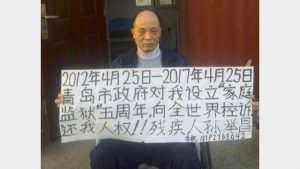 2012年4月25日—2017年4月25日
青岛市政府对我设立"家庭
监狱"五周年.向全世界控诉
还我人权!!残疾人孙举昌